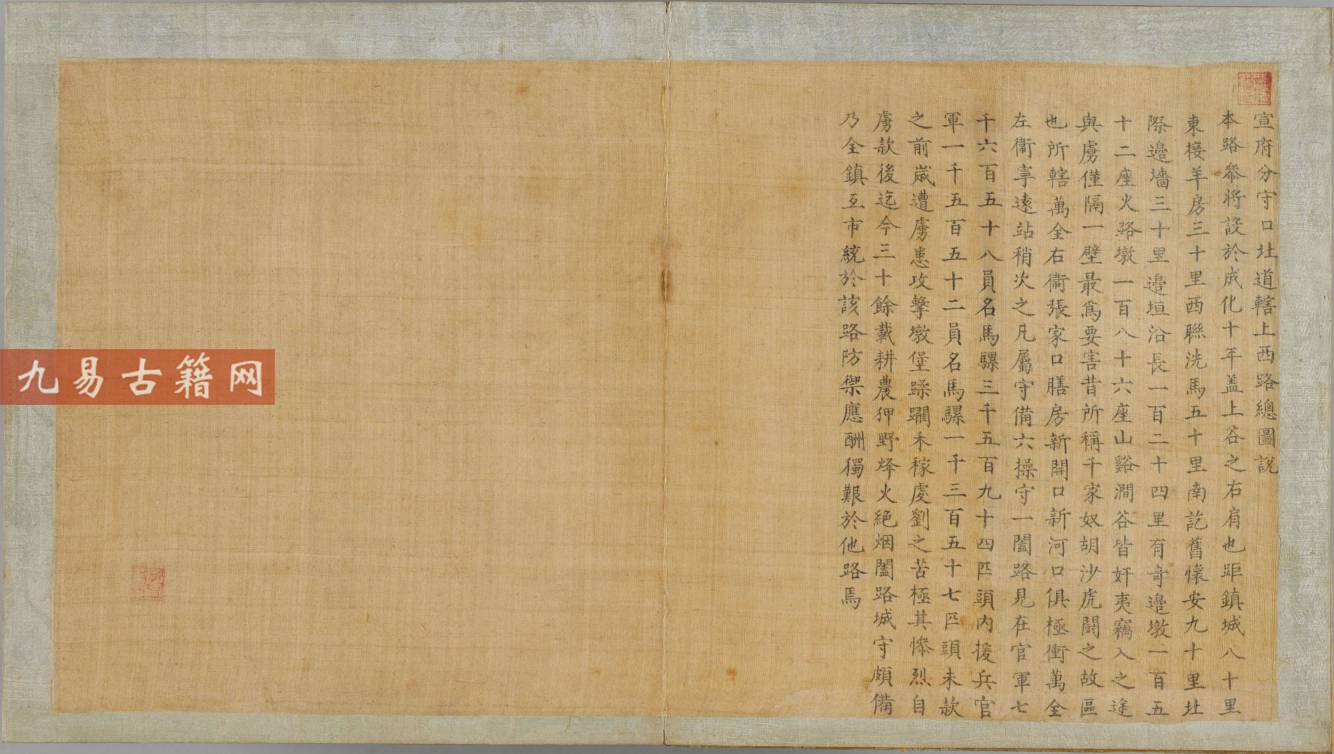 宣府分守口北道轄上西路總圖說
本路叅將設於成化十年盖上谷之右肩也距鎮城八十里
東接羊房三十里西聯洗馬五十里南訖舊懷安九十里北
際邊墻三十里邊垣沿長一百二十四里有奇邊墩一百五
十二座火路墩一百八十六座山谿澗谷皆奸夷竊入之途
與虜僅隔一壁最爲要害昔所稱千家奴胡沙虎閙之故區
也所轄萬全右衞張家口膳房新開口新河口俱極衝萬全
左衞寧遠站稍次之凡屬守備六操守一闔路見在官軍七
千六百五十八員名馬騾三千五百九十四匹頭内援兵官
軍一千五百五十二員名馬騾一千三百五十七匹頭未款
之前嵗遭虜患攻擊墩堡蹂躝禾稼虔劉之苦極其慘烈自
虜款後迄今三十餘載耕農狎野烽火絶烟闔路城守頗備
乃全鎮互市統於該路防禦應酬獨艱於他路焉
九易古籍网